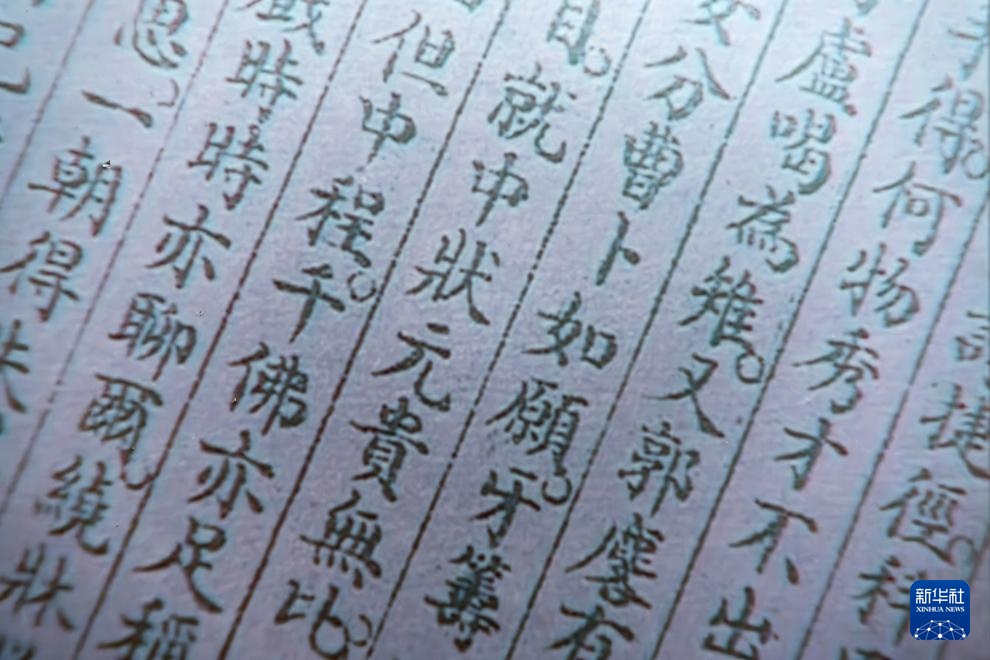 捷徑。科
手得。何物秀才不出
盧喝為雉。又郭塵有
分曹卜如願。牙籌
目。就中狀元貴無比。
但中程。千佛亦足稱
戲時。時亦聊爾。繞牀
思、一朝得
新华社
XINHUA NEWS